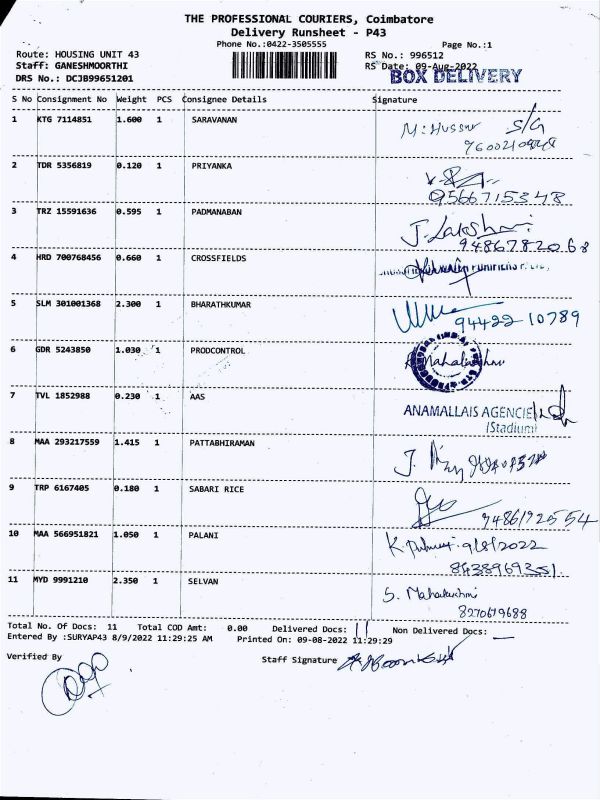 THE PROFESSIONAL COURIERS, Coimbatore
Delivery Runsheet - P43
Phone No.:0422-3505555 Page No.:1
Route: HOUSING UNIT 43 RS No.: 996512
Staff: GANESHMOORTHI RS Date: 09-Aug-2022
DRS No.: DCJB99651201 BOX DELIVERY
S No Consignment No Weight PCS Consignee Details Signature
1 KTG 7114851 1.600 1 SARAVANAN
2 TDR 5356819 0.120 1 PRIYANKA
9566715348
3 TRZ 15591636 0.595 1 PADMANABAN J. Lakshmi
9486782068
4 HRD 700768456 0.660 1 CROSSFIELDS
5 SLM 301001368 2.300 1 BHARATHKUMAR
94422 10789
6 GDR 5243850 1.030 1 PRODCONTROL
7 TVL 1852988 0.230 1 AAS ANAMALLAIS AGENCIE
(Stadium)
8 MAA 293217559 1.415 1 PATTABHIRAMAN
9 TRP 6167405 0.180 1 SABARI RICE
9486192554
10 MAA 566951821 1.050 1 PALANI 9/8/2022
8438969351
11 MYD 9991210 2.350 1 SELVAN S. Mahalakshmi
8270679688
Total No. Of Docs: 11 Total COD Amt: 0.00 Delivered Docs: 11 Non Delivered Docs: —
Entered By :SURYAP43 8/9/2022 11:29:25 AM Printed On: 09-08-2022 11:29:29
Verified By Staff Signature